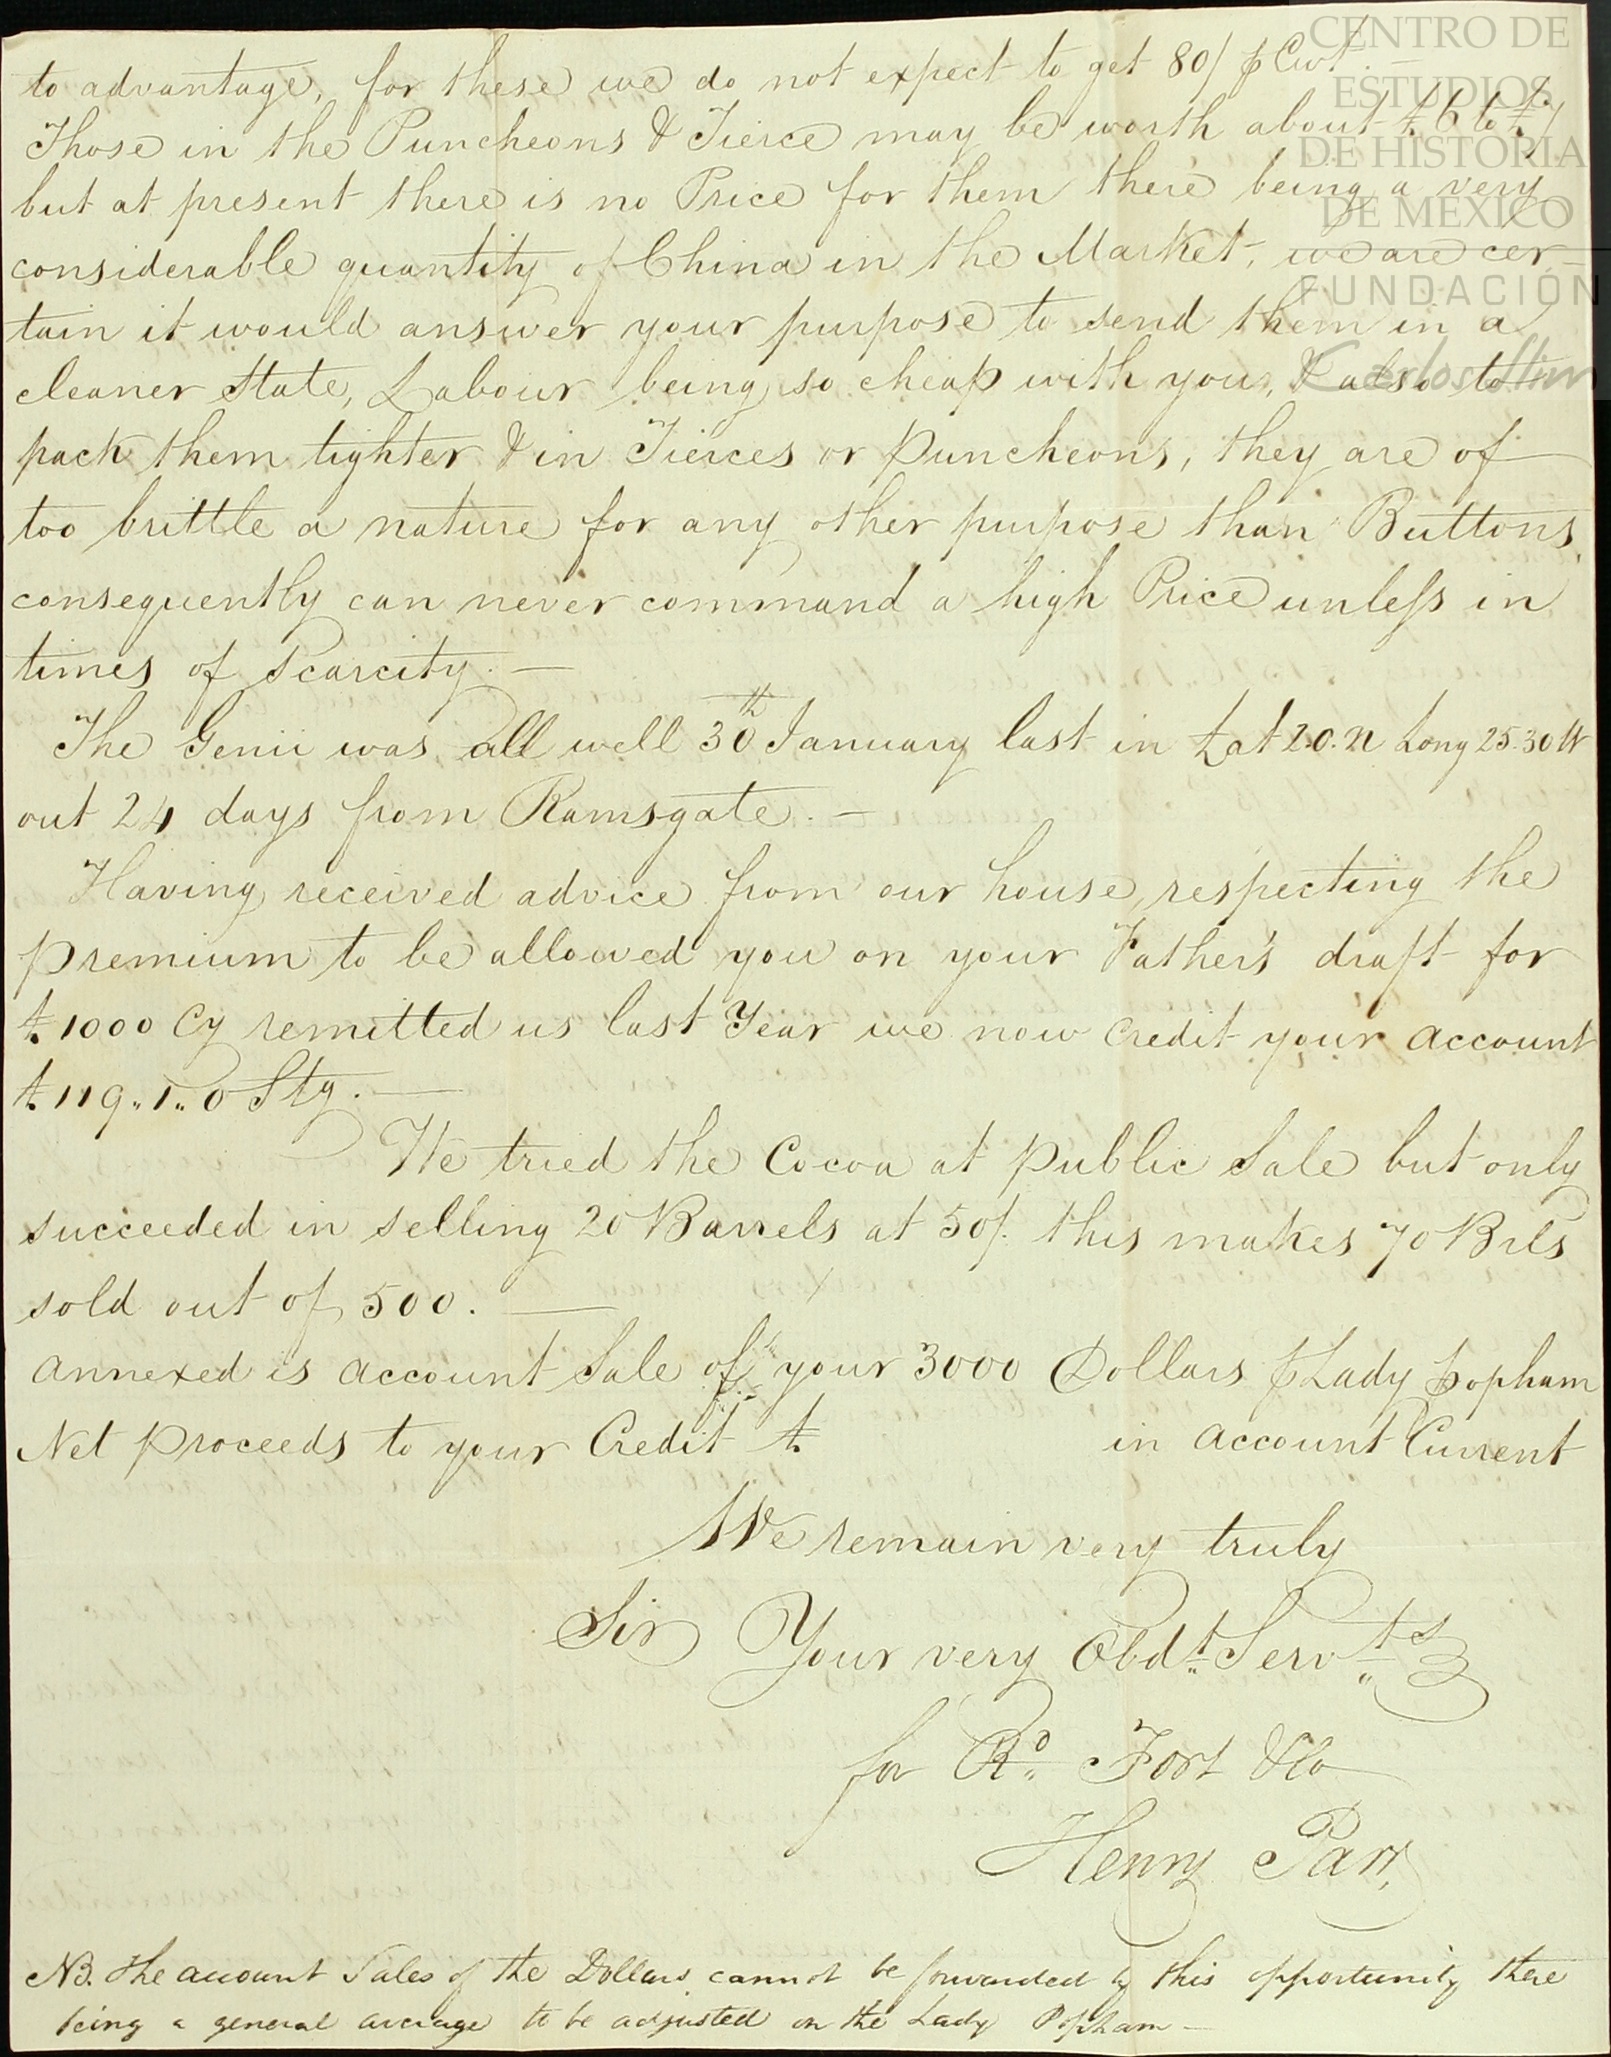 to advantage, for these we do not expect to get 80/ p Cwt. —
Those in the Puncheons & Tierce may be worth about £6 to £7
but at present there is no Price for them there being a very
considerable quantity of China in the Market, we are cer-
tain it would answer your purpose to send them in a
cleaner State, Labour being so cheap with you, & also to
pack them tighter & in Tierces or Puncheons, they are of
too brittle a nature for any other purpose than Buttons,
consequently can never command a high Price unless in
times of Scarcity. —
The Genii was all well 30th January last in Lat 20. N Long 25.30 W
out 24 days from Ramsgate. —
Having received advice from our house, respecting the
premium to be allowed you on your Father's draft for
£1000 Cy remitted us last Year we now Credit your account
£119.. 1.. 0 Stg. —
We tried the Cocoa at public Sale but only
succeeded in selling 20 Barrels at 50/. this makes 70 Brls
sold out of 500. —
Annexed is account Sale of your 3000 Dollars p Lady Popham
Net proceeds to your Credit £ in account Current
We remain very truly
Sir Your very Obdt. Servts
for Rd. Fort & Co
Henry Parr,
NB. The account Sales of the Dollars cannot be forwarded by this opportunity there
being a general average to be adjusted on the Lady Popham —
CENTRO DE
ESTUDIOS
DE HISTORIA
DE MÉXICO
FUNDACIÓN
Carlos Slim